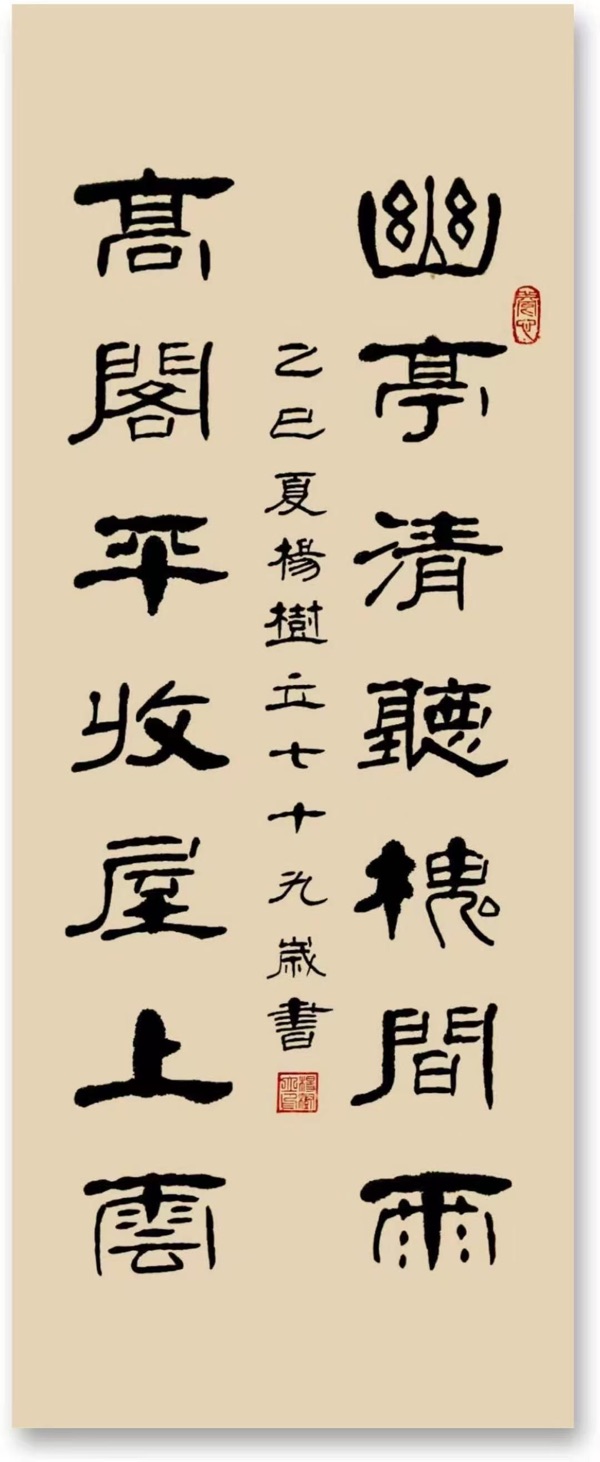 幽亭清聽槐間雨
高閣平收屋上雲
乙巳夏楊樹立七十九歲書